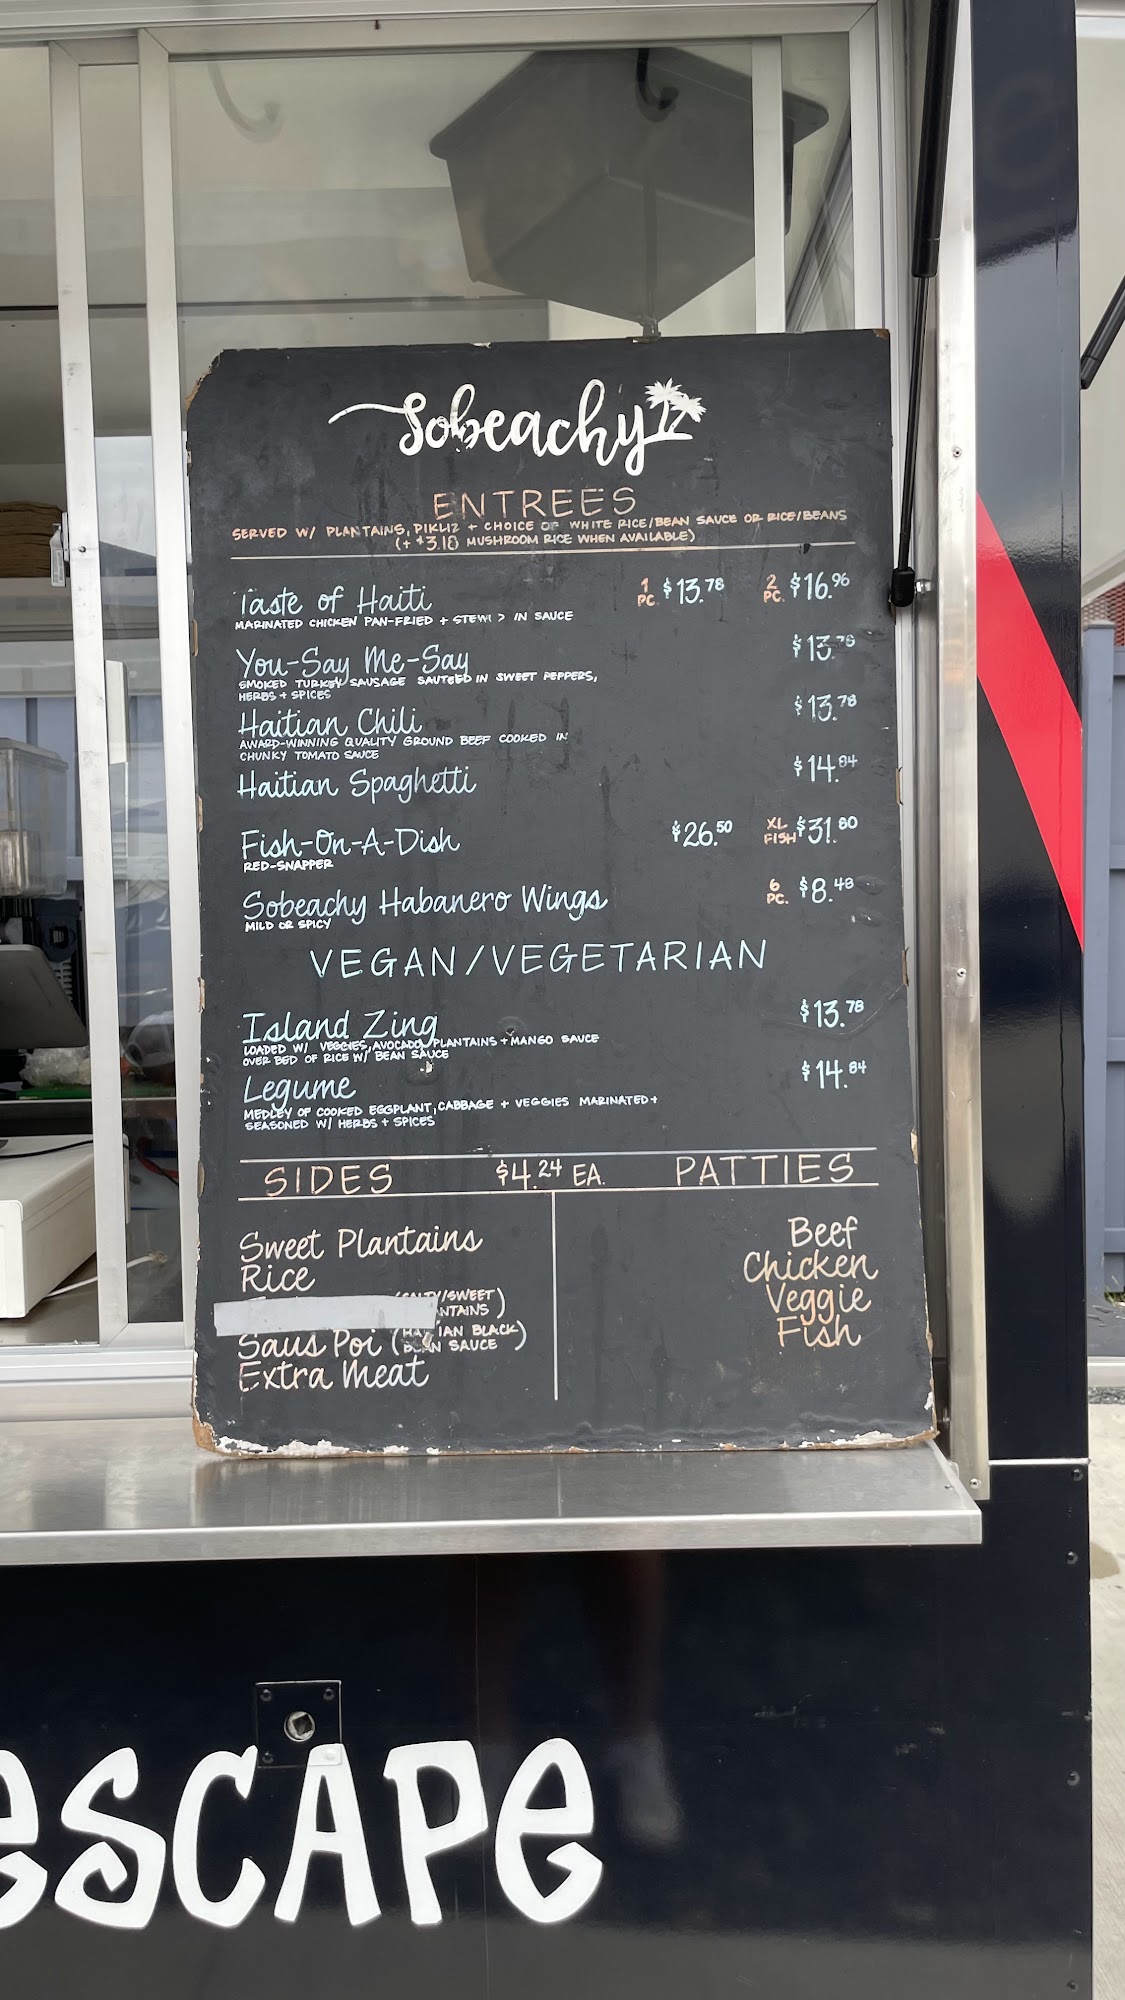 Sobeachy
ENTREES
SERVED W/ PLANTAINS, PIKLIZ + CHOICE OF WHITE RICE/BEAN SAUCE OR RICE/BEANS
(+ $3.18 MUSHROOM RICE WHEN AVAILABLE)
Taste of Haiti 1 PC. $13.78 2 PC. $16.96
MARINATED CHICKEN PAN-FRIED + STEW IN SAUCE
You-Say Me-Say $13.78
SMOKED TURKEY SAUSAGE SAUTEED IN SWEET PEPPERS,
HERBS + SPICES
Haitian Chili $13.78
AWARD-WINNING QUALITY GROUND BEEF COOKED IN
CHUNKY TOMATO SAUCE
Haitian Spaghetti $14.84
Fish-On-A-Dish $26.50 XL FISH $31.80
RED-SNAPPER
Sobeachy Habanero Wings 6 PC. $8.48
MILD OR SPICY
VEGAN/VEGETARIAN
Island Zing $13.78
LOADED W/ VEGGIES, AVOCADO, PLANTAINS + MANGO SAUCE
OVER BED OF RICE W/ BEAN SAUCE
Legume $14.84
MEDLEY OF COOKED EGGPLANT, CABBAGE + VEGGIES MARINATED +
SEASONED W/ HERBS + SPICES
SIDES $4.24 EA. PATTIES
Sweet Plantains
Rice
/SWEET
NTAINS)
Saus Poi (HAITIAN BLACK
BEAN SAUCE)
Extra Meat
Beef
Chicken
Veggie
Fish
eSCAPe